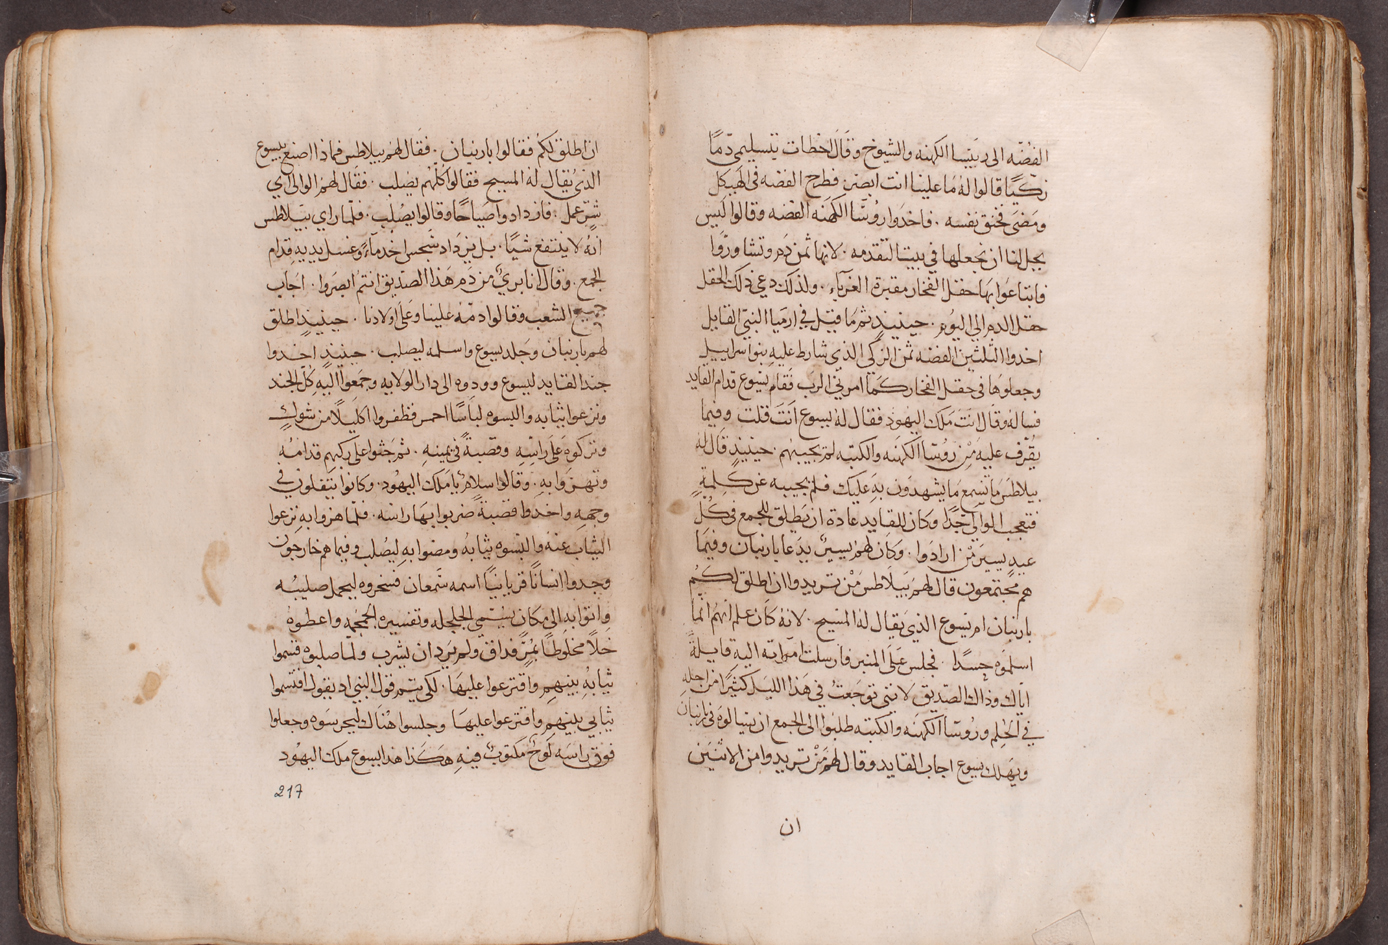 الفضّه الى رييسا الكهنه والشيوخ وقال اخطات بتسليمي دمًا
زكيًا قالوا له ما علينا انت ابصر، فطرح الفضه في الهيكل
ومضى فخنق نفسه ٠ فاخدوا روسّا الكهنه الفضه وقالوا ليس
يحل لنا ان نجعلها في بيت التقدمه ٠ لانها ثمن دم وتشاوروا
وابتاعوا بها حقل الفخار مقبرة الغربآء ٠ ولذلك دعي ذلك الحقل
حقل الدم الى اليوم ٠ حينيدٍ تم ما قيل في ارميا النبي القايل
اخدوا الثلثين الفضه ثمن الزكى الذي شارط عليه بنو اسراييل
وجعلوها في حقل الفخار كما امرني الرب فقام يسوع قدام القايد
فساله وقال انت ملك اليهود فقال له يسوع انت قلت وفيما
يقرف عليه من روسّا الكهنه والكتبه لم يجيبهم ٠ حينيدٍ قال له
بيلاطس ما تسمع ما يشهدون به عليك فلم يجيبه عن كلمةٍ
فتعجب الوالي جدًا وكان للقايد عادة ان يطلق للجمع في كل
عيدٍ يسير من ارادوا ٠ وكان لهم يسيرٌ يدعا باربان وفيما
هم مجتمعون قال لهم بيلاطس من تريدوا ان اطلق لكم
باربان ام يسوع الذي يقال له المسيح ٠ لانه كان علم انهم انما
اسلموه حسدًا ٠ فجلس على المنبر فارسلت امراته اليه قايلةً
اياك وذاك الصديق لانني توجعت في هذا الليل كثيرًا من اجله
في الحلم وروسّا الكهنه والكتبه طلبوا الى الجمع ان يسالوه في باربان
ويهلك يسوع اجاب القايد وقال لهم من تريدوا من الاثنين
ان
ان اطلق لكم فقالوا باربان ٠ فقال لهم بيلاطس فماذا اصنع بيسوع
الذي يقال له المسيح فقالوا كلّهم يصلب ٠ فقال لهم الوالي اي
شرٍ عمل ٠ فازدادوا صياحًا وقالوا يصلب ٠ فلما راى بيلاطس
انه لا ينتفع شيًا ٠ بل يزداد شجس اخد مآء وغسل يديه قدام
الجمع ٠ وقال انا بريٌ من دم هذا الصديق انتم ابصروا ٠ اجاب
جميع الشعب وقالوا دمه علينا وعلى اولادنا ٠ حينيدٍ اطلق
لهم باربان وجلد يسوع واسلمه ليصلب ٠ حينيدٍ اخدوا
جند القايد ليسوع وودوه الى دار الولايه وجمعوا اليه كلّ الجند
ونزعوا ثيابه والبسوه لباسًا احمر فظفروا اكليلًا من شوك
وتركوه على راسه وقصبةً في يمينه ٠ ثم جثوا على ركبهم قدامه
وتهزوا به ٠ وقالوا سلام يا ملك اليهود ٠ وكانوا يتفلون في
وجهه واخدوا قصبةً ضربوا بها راسه ٠ فلما هزوا به نزعوا
الثياب عنه والبسوه ثيابه ومضوا به ليصلب وفيما هم خارجون
وجدوا انسانًا قريانيًا اسمه شمعان فسخروه ليحمل صليبه
واتوا به الى مكان يسمى الجلجله وتفسيره الجمجمه واعطوه
خلًا مخلوطًا بمرٍّ فداق ولم يرد ان يشرب ولما صلبوه قسموا
ثيابه بينهم واقترعوا عليها ٠ لكي يتم قول النبي اد يقول اقتسموا
ثيابي بينهم واقترعوا عليها وجلسوا هناك ليحرسوه وجعلوا
فوق راسه لوح مكتوب فيه هكذا هدا يسوع ملك اليهود
217